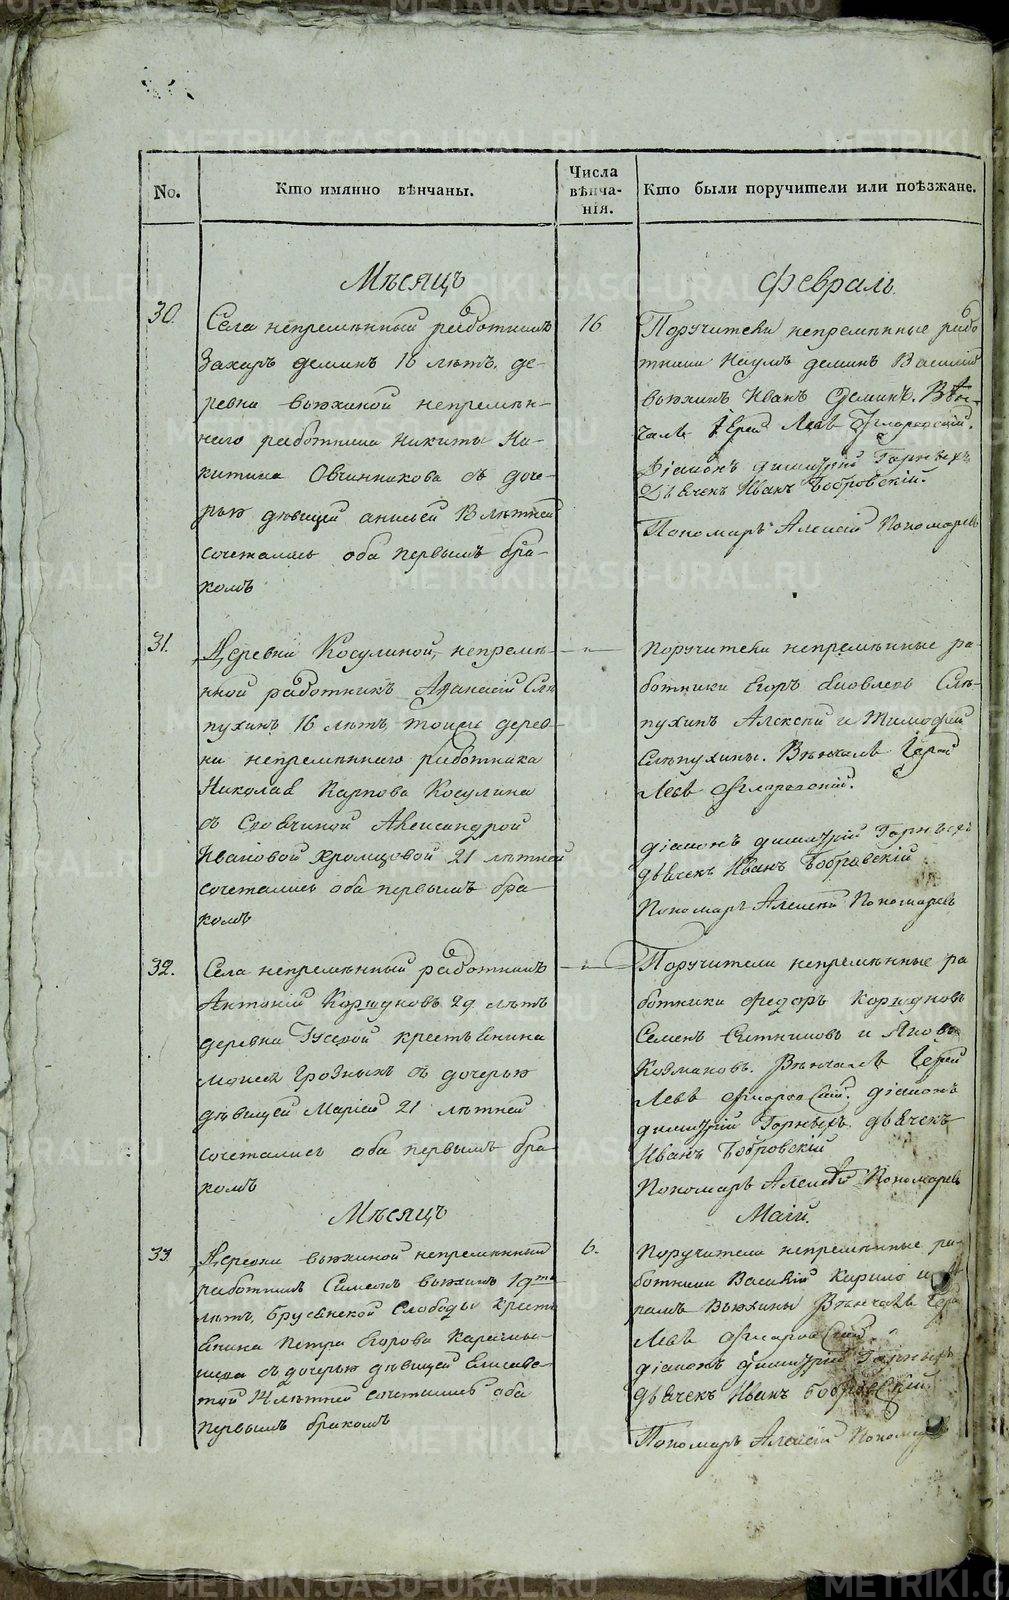 No.
Кто имянно вѣнчаны.
Числа вѣнча-нія.
Кто были поручители или поѣзжане.
Мѣсяцъ
Февраль
30.
Села непремѣнный работникъ
Захаръ Деминъ 16 лѣтъ, де-
ревни Вьюхиной непремѣн-
наго работника Никиты Ни-
китина Овчинникова съ доче-
рью дѣвицей Анисьей 18 лѣтней
сочетались оба первымъ бра-
комъ
16
Поручители непремѣнные рабо
тники Наумъ Деминъ Василій
Вьюхинъ Иванъ Деминъ. Вѣн-
чалъ Іерей Левъ Флоровскій.
Діаконъ Димитрій Горныхъ
Дьячекъ Иванъ Бобровскій.
Пономарь Алексій Пономаревъ
31.
Деревни Косулиной, непремѣ-
нной работникъ Афанасій Слѣ
пухинъ 16 лѣтъ, тоиже дерев-
ни непремѣннаго работника
Николая Карпова Косулина
съ Свовчиной Александрой
Ивановой Хромцовой 21 лѣтней
сочетались оба первымъ бра-
комъ
Поручители непремѣнные ра-
ботники Егоръ Яковлевъ Слѣ-
пухинъ Алексѣй и Тимофей
Слѣпухины. Вѣнчалъ Іерей
Левъ Флоровскій.
Діаконъ Димитрій Горныхъ
дьячекъ Иванъ Бобровскій
Пономарь Алексѣй Пономаревъ
32.
Села непремѣнный работникъ
Антоній Коршуновъ 29 лѣтъ
деревни Гусевой крестьянина
Моисея Грозныхъ съ дочерью
дѣвицей Маріей 21 лѣтней
сочетались оба первымъ бра-
комъ
Поручители непремѣнные ра
ботники Федоръ Коршуновъ
Семенъ Ситниковъ и Яковъ
Казмаковъ. Вѣнчалъ Іерей
Левъ Флоровскій. Діаконъ
Димитрій Горныхъ дьячекъ
Иванъ Бобровскій
Пономарь Алексѣй Пономаревъ
Мѣсяцъ
Маій.
33
Деревни Вьюхиной непремѣнный
работникъ Симеонъ Вьюхинъ 19ти
лѣтъ, Брусянской Слободы крестья
янина Петра Егорова
съ дочерью дѣвицей Елисаве-
той лѣтней сочетались оба
первымъ бракомъ
6.
Поручители непремѣнные ра-
ботники Василій Кирило и
Вьюхины Вѣнчалъ Іерей
Левъ Флоровскій.
діаконъ Димитрій Горныхъ
дьячекъ Иванъ Бобровскій
Пономарь Алексій Пономаревъ
METRIKI.GASO-URAL.RU